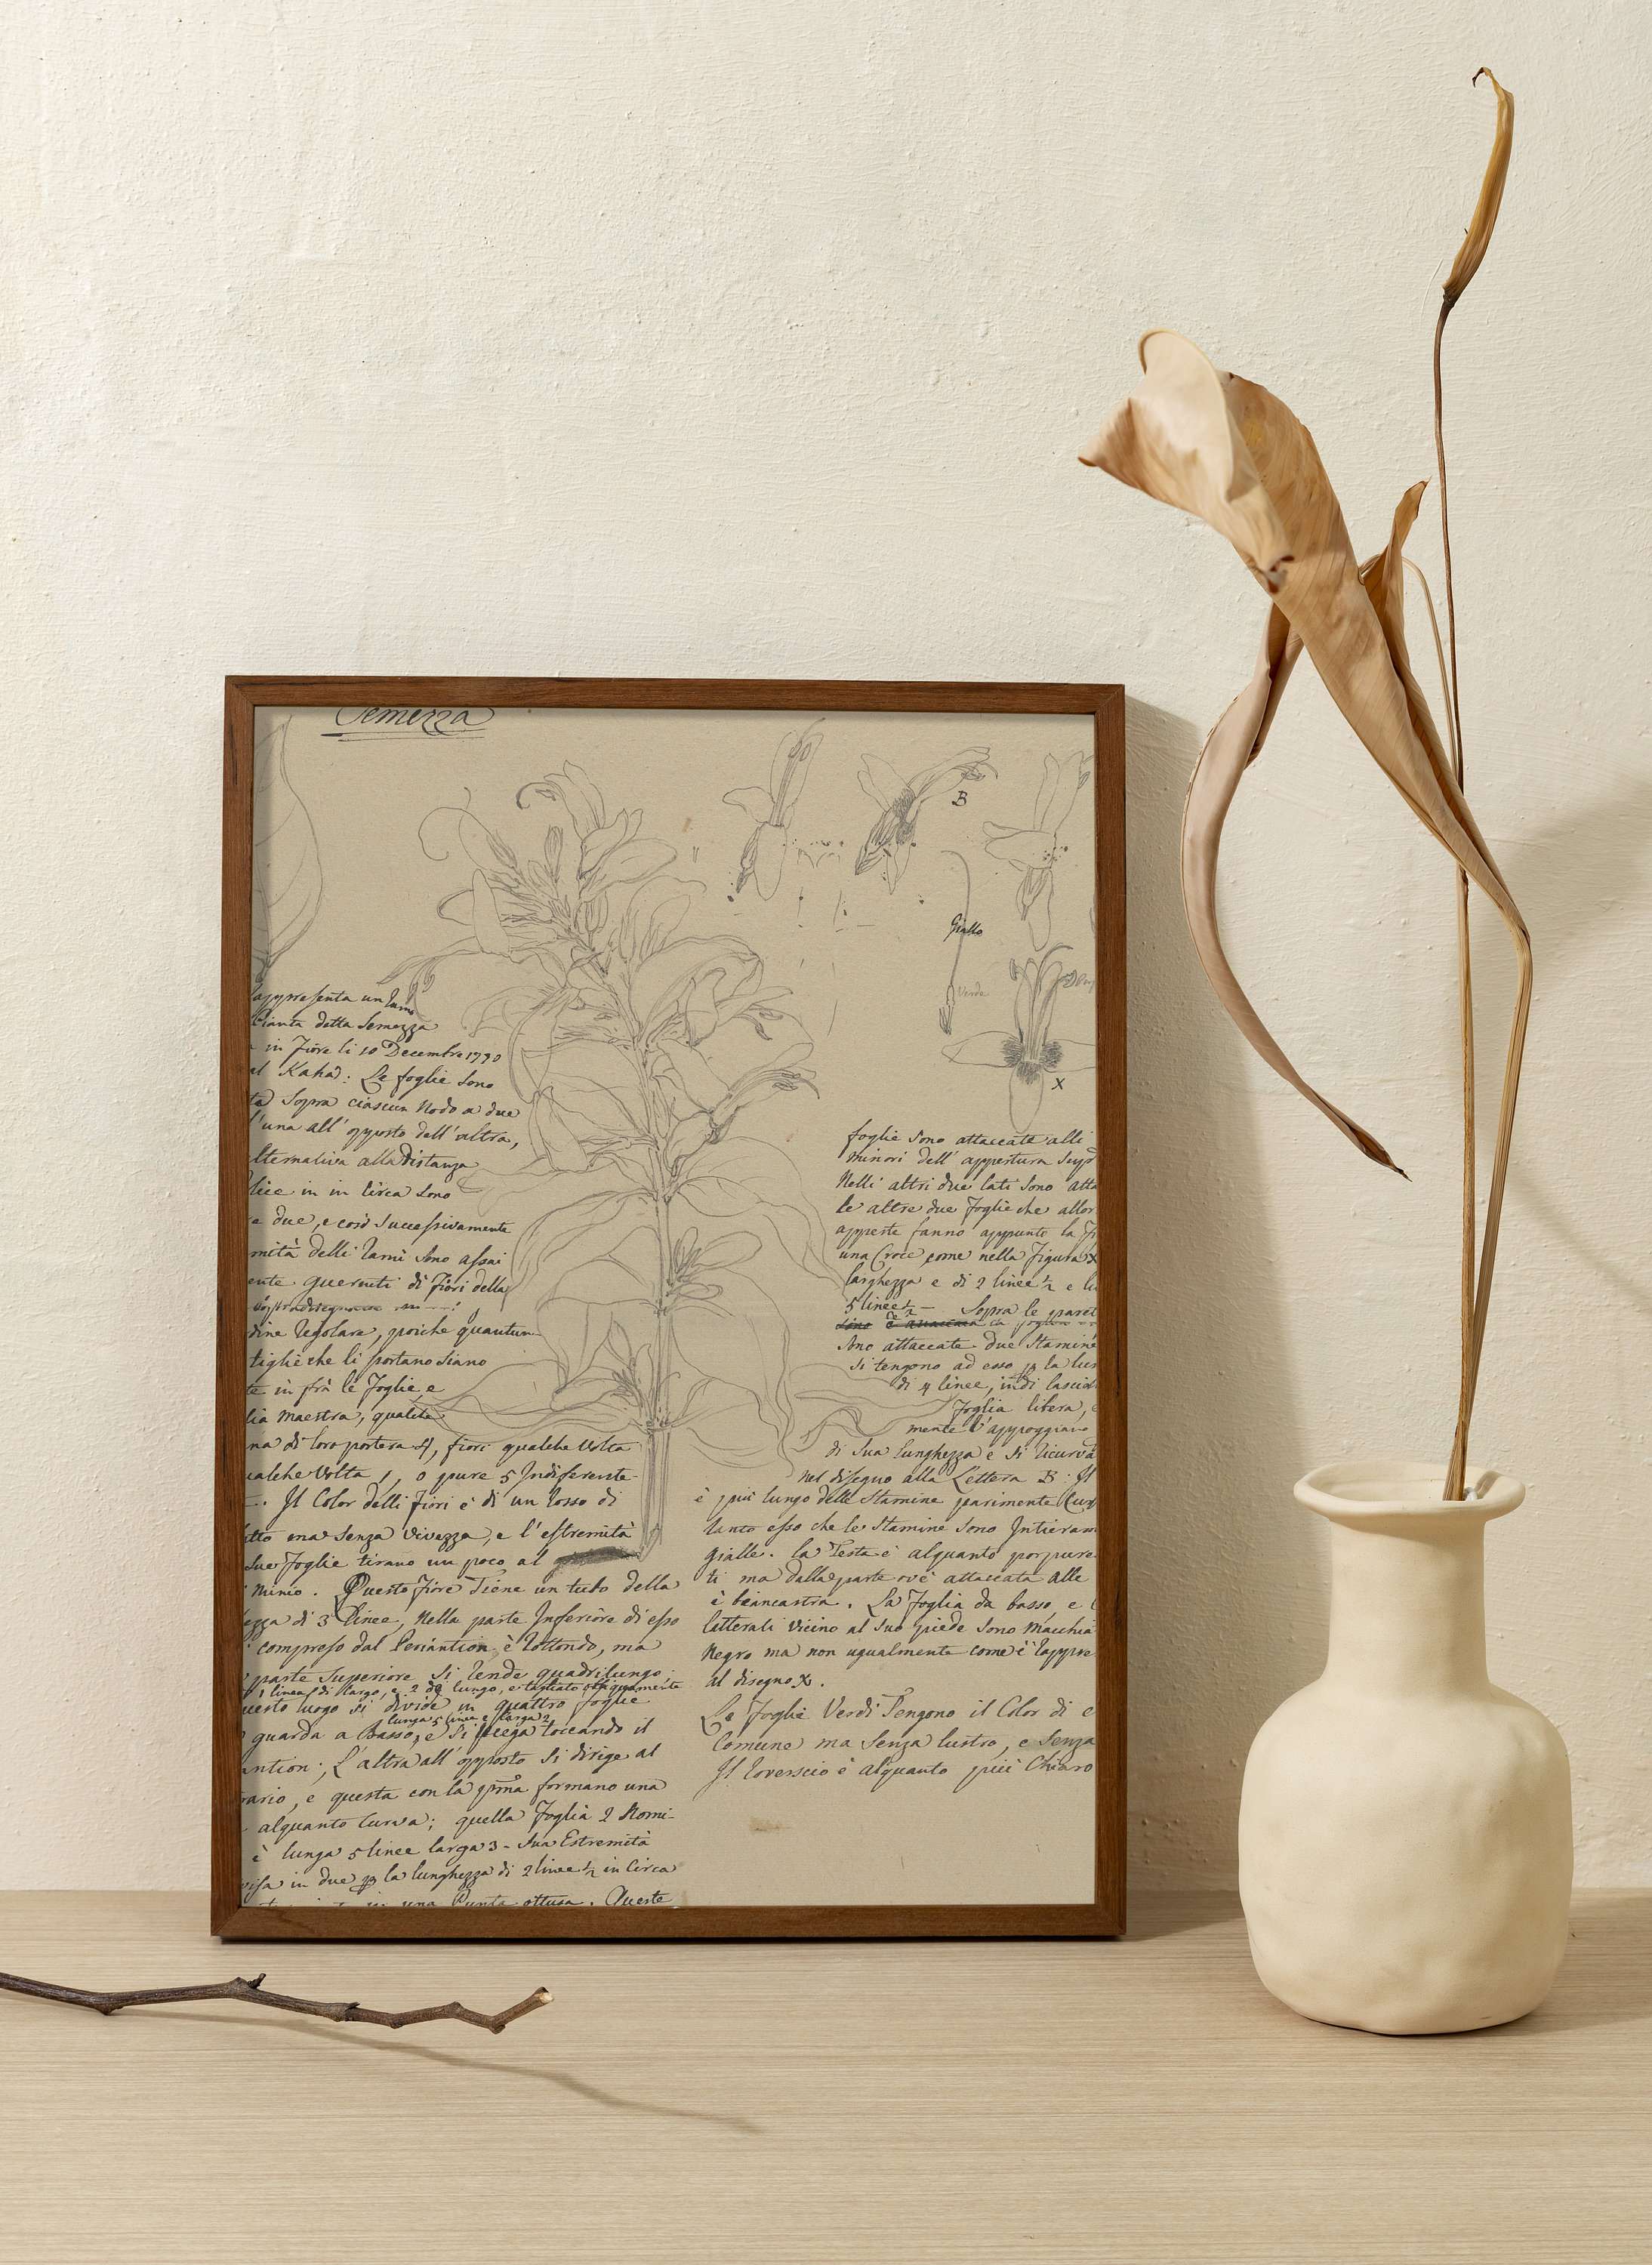 Semezza
B
Giallo
verde
X
rappresenta un Ramo
Pianta detta Semezza
in Fiore li 10 Decembre 1790
al Kahad: Le foglie sono
Sopra ciascun Nodo a due
l'una all'opposto dell'altra,
alternativa alla distanza
in in circa sono
a due, e così successivamente
mità delli Rami sono assai
ente guerniti di Fiori della
dine Regolare, poiche quantun
tiglie che li portano siano
te in frà le Foglie, e
lia Maestra, qualche
na di loro portera 4, fiori qualche volta
ualche volta 1, o pure 5 Indiferente-
Il Color delli Fiori è di un Rosso di
tto ma senza vivezza, e l'estremità
sue Foglie tirano un poco al
Minio. Questo Fiore Tiene un tubo della
ezza di 3 linee, Nella parte Inferiore di esso
compreso dal Periantion è Rottondo, ma
parte Superiore si rende quadrilungo;
1 linea di largo, e 2 di lungo, e tagliato obliquamente
uesto luogo si divide in quattro foglie
lunga 5 linee e larga 2
guarda a Basso, e si piega toccando il
antion; L'altra all'opposto si dirige al
rario, e questa con la pma formano una
alquanto curva; quella Foglia 2 Nomi-
è lunga 5 linee larga 3- sua Estremità
visa in due p la lunghezza di 2 linee 1/2 in circa
una Punta ottusa. Queste
foglie sono attaccate alli
minori dell'appertura supr
Nelli altri due lati sono atta
le altre due Foglie che allor
apperte fanno appunto la Fi
una Croce come nella Figura X
larghezza e di 2 linee 1/2 e lu
5 linee 1/2 — Sopra le pareti
sono attaccate due Stamine
si tengono ad esso p la lun
di 4 linee, indi lascia
Foglia libera,
mente l'appoggiano
di sua lunghezza e si ricurva
nel disegno alla Lettera B. Il
è più lungo delle Stamine parimente Curv
tanto esso che le Stamine sono Intieram
gialle. la Testa è alquanto porpure
ti ma dalla parte ov'è attaccata alle
è biancastra. La Foglia da basso, e l
letterali vicino al suo piede sono Macchia
Negro ma non ugualmente come è rappre
al disegno X.
Le Foglie Verdi Tengono il Color di e
Comune ma senza lustro, e senza
Il Roverscio è alquanto più Chiaro